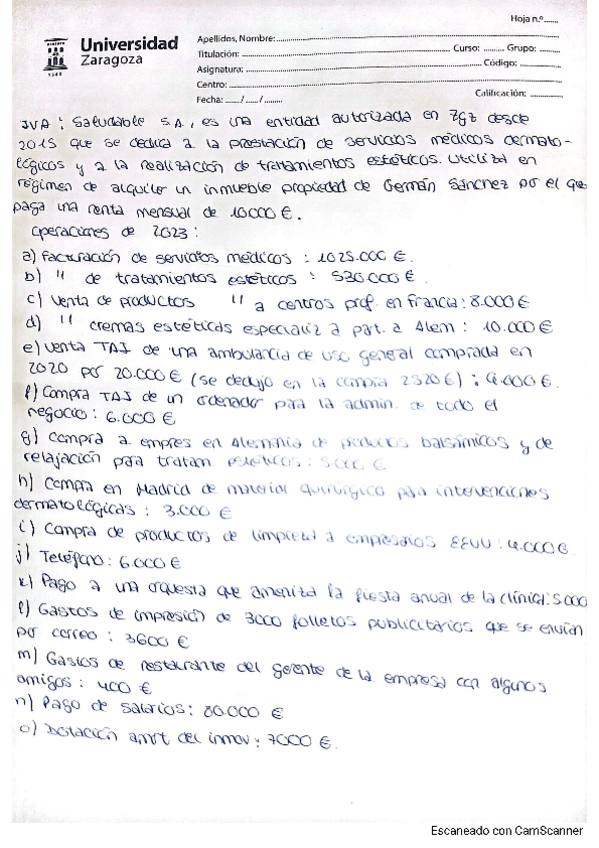 Hoja n.º......
Universidad
Zaragoza
1542
Apellidos, Nombre:
Titulación: Curso: Grupo:
Asignatura: Código:
Centro: Calificación:
Fecha: ...../...../.....
IVA: Saludable S.A, es una entidad autorizada en Zgz desde
2015 que se dedica a la prestación de servicios médicos dermato-
lógicos y a la realización de tratamientos estéticos. Utiliza en
régimen de alquiler un inmueble propiedad de Germán Sánchez por el que
paga una renta mensual de 10000 €.
Operaciones de 2023:
a) Facturación de servicios médicos: 1025.000 €.
b) " de tratamientos estéticos: 530.000 €.
c) Venta de productos " a centros prof. en Francia: 8.000 €
d) " cremas estéticas especializ a part. a Alem: 10.000 €
e) Venta TAI de una ambulancia de uso general comprada en
2020 por 20.000 € (se dedujo en la compra 2520 €): 9.000 €.
f) Compra TAI de un ordenador para la admin. de todo el
negocio: 6.000 €
g) Compra a empres en Alemania de productos balsámicos y de
relajación para tratam. estéticos: 5000 €
h) Compra en Madrid de material quirúrgico para intervenciones
dermatológicas: 3.000 €
i) Compra de productos de limpieza a empresarios EEUU: 4.000 €.
j) Teléfono: 6.000 €
k) Pago a una orquesta que ameniza la fiesta anual de la clínica: 5000
l) Gastos de impresión de 3000 folletos publicitarios que se envían
por correo: 3600 €
m) Gastos de restaurante del gerente de la empresa con algunos
amigos: 400 €
n) Pago de salarios: 80.000 €
o) Dotación amrt del inmov: 7000 €.
Escaneado con CamScanner